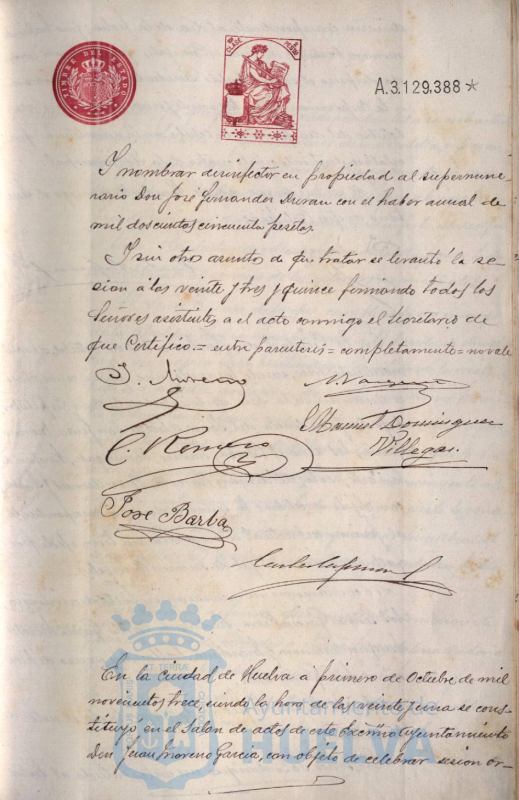 TIMBRE DEL ESTADO
CLASE
A.3.129.388 *
I nombrar desinfector en propiedad al supernume-
rario Don José Fernandez Duran con el haber anual de
mil doscientos cincuenta pesetas.
I sin otro asunto de que tratar se levantó la se-
sion a las veinte y tres y quince firmando todos los
Señores asistentes a el acto conmigo el Secretario de
que Certifico.= entre parentesis = completamente = no vale
J. Moreno
Manuel Dominguez
Villegas.
C. Romero
José Barba
En la ciudad de Huelva a primero de Octubre de mil
novecientos trece, siendo la hora de las veinte y una se cons-
tituyó en el Salon de actos de este Excmo Ayuntamiento
Don Juan Moreno Garcia, con objeto de celebrar sesion or-
Ayuntamiento de
HUELVA